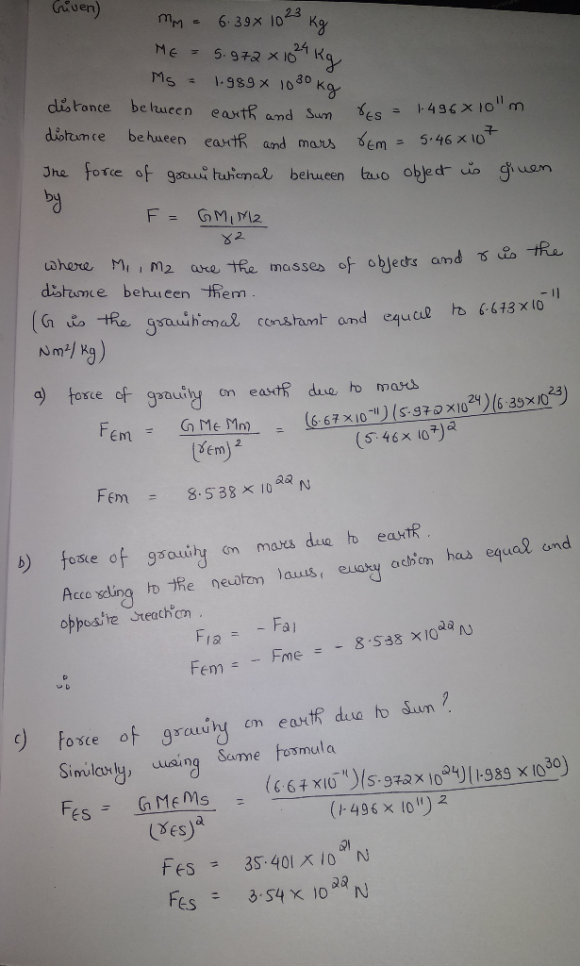 Given)
mM = 6.39 × 10^23 Kg
ME = 5.972 × 10^24 Kg
MS = 1.989 × 10^30 Kg
distance between earth and Sun rES = 1.496 × 10^11 m
distance between earth and mars rEm = 5.46 × 10^7
The force of gravitutional between two object is given
by
F = GM1M2 / r2
where M1, M2 are the masses of objects and r is the
distance between them.
(G is the gravitional constant and equal to 6.673×10^-11
Nm2/Kg)
a) force of gravity on earth due to mars
FEm = G ME Mm / (rEm)^2 = (6.67 × 10^-11) (5.972 × 10^24) (6.39 × 10^23) / (5.46 × 10^7)^2
FEm = 8.538 × 10^22 N
b) force of gravity on mars due to earth.
According to the newton laws, every action has equal and
opposite reaction.
F12 = - F21
∴ FEm = - FmE = - 8.538 × 10^22 N
c) Force of gravity on earth due to Sun?
Similarly, using Same formula
FES = G ME MS / (rES)^2 = (6.67 × 10^-11) (5.972 × 10^24) (1.989 × 10^30) / (1.496 × 10^11)^2
FES = 35.401 × 10^21 N
FES = 3.54 × 10^22 N